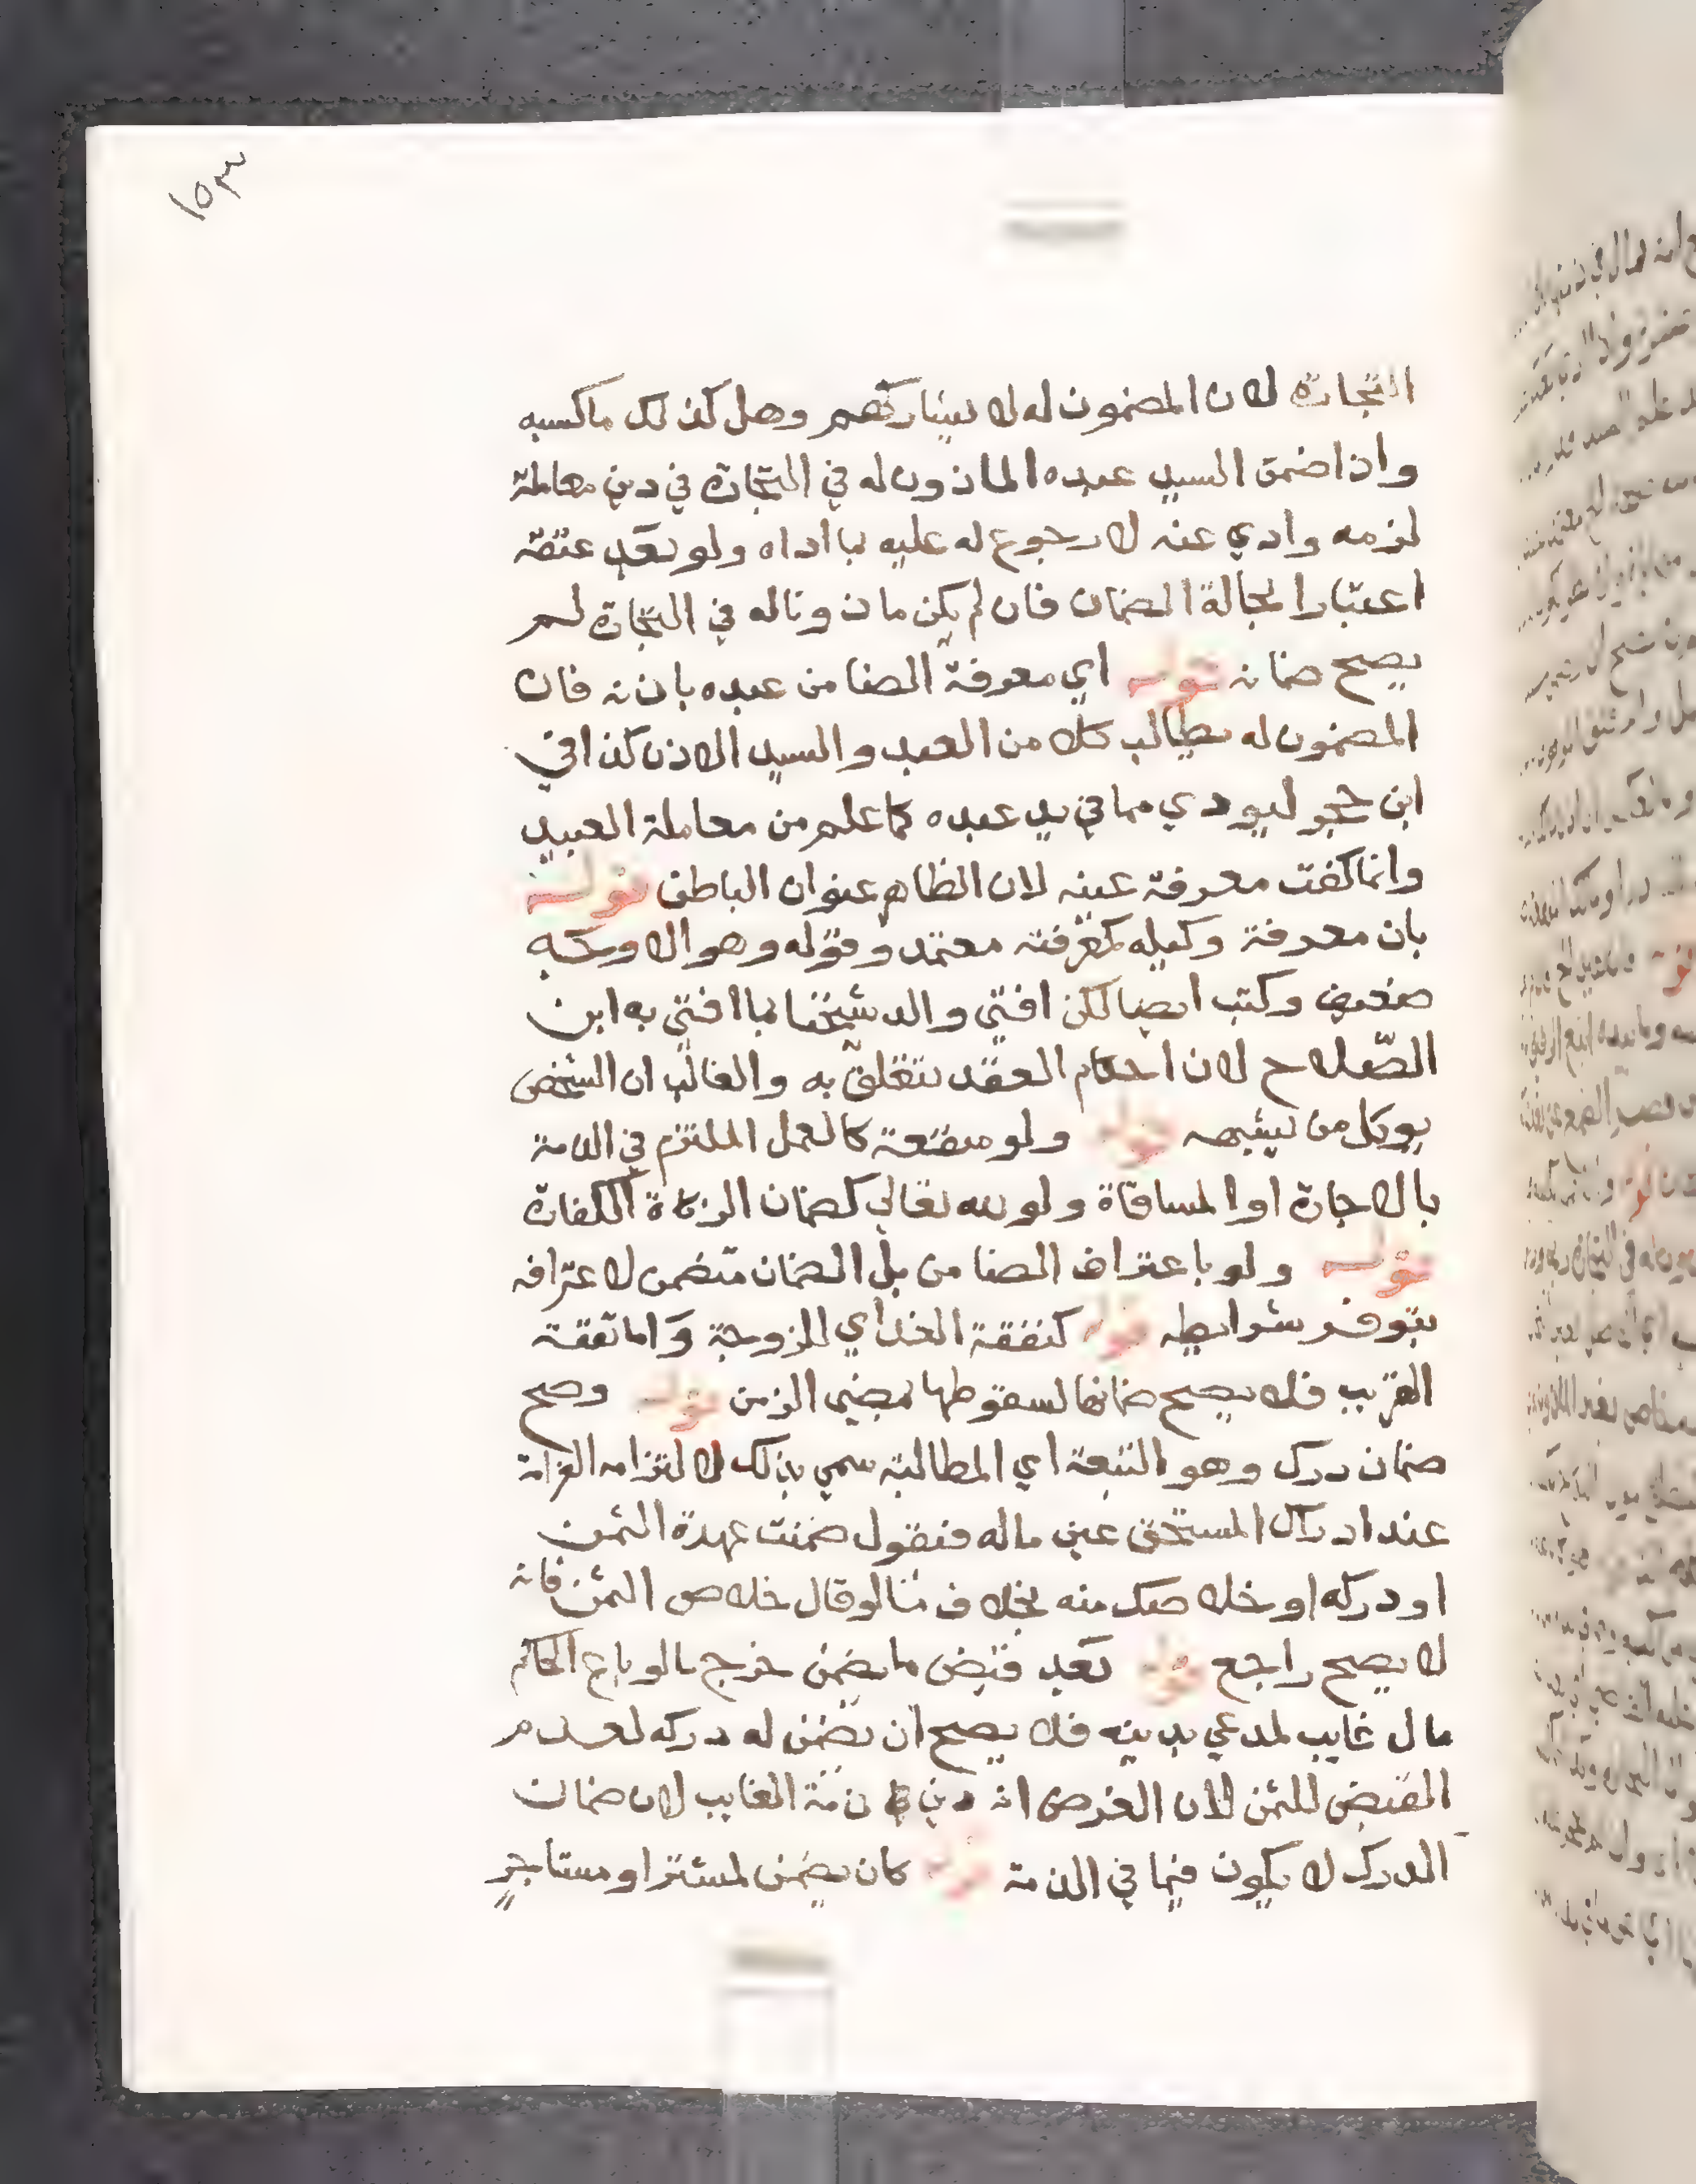 ١٥٣
التجارة لان المضمون له لا يشاركهم وهل كذلك ما كسبه
واذا ضمن السيد عبده الماذون له في التجارة في دين معاملة
لزمه وادي عنه لا رجوع له عليه بما اداه ولو بعد عتقه
اعتبارا بحالة الضمان فان لم يكن ماذونا له في التجارة لم
يصح ضمانه قوله اي معرفة الضامن عبده باذنه فان
المضمون له يطالب كلا من العبد والسيد الاذن كذا في
ابن حجر ليودي مما في يد عبده كما علم من معاملة العبيد
وانما كفت معرفة عينه لان الظاهر عنوان الباطن قوله
بان معرفة وكيله كمعرفته معتمد وقوله وهو الاوجه
ضعيف وكتب ايضا لكن افتي والد شيخنا بما افتي به ابن
الصّلاح لان احكام العقد تتعلق به والغالب ان الشخص
يوكل من يشبهه قوله ولو منفعة كالعمل الملتزم في الذمة
بالاجارة او المساقاة ولو لله تعالي كضمان الزكاة الكفارة
قوله ولو باعتراف الضامن بل الضمان متضمن لاعترافه
بتوفر شرايطه قوله كنفقة الغد اي للزوجة واما نفقة
القريب فلا يصح ضمانها لسقوطها بمضي الزمن قوله وصح
ضمان درك وهو التبعة اي المطالبة سمي بذلك لالتزامه الغرامة
عند ادراك المستحق عين ماله فيقول ضمنت عهدة الثمن
او دركه او خلاصك منه بخلاف مالو قال خلاص الثمن فانه
لا يصح راجع قوله بعد قبض ما يضمن خرج مالو باع الحاكم
مال غايب لمدعي بدينه فلا يصح ان يضمن له دركه لعدم
القبض للثمن لان الغرض انه دين ذمة الغايب لان ضمان
الدرك لا يكون فيما في الذمة قوله كان يضمن لمشتر او مستاجر